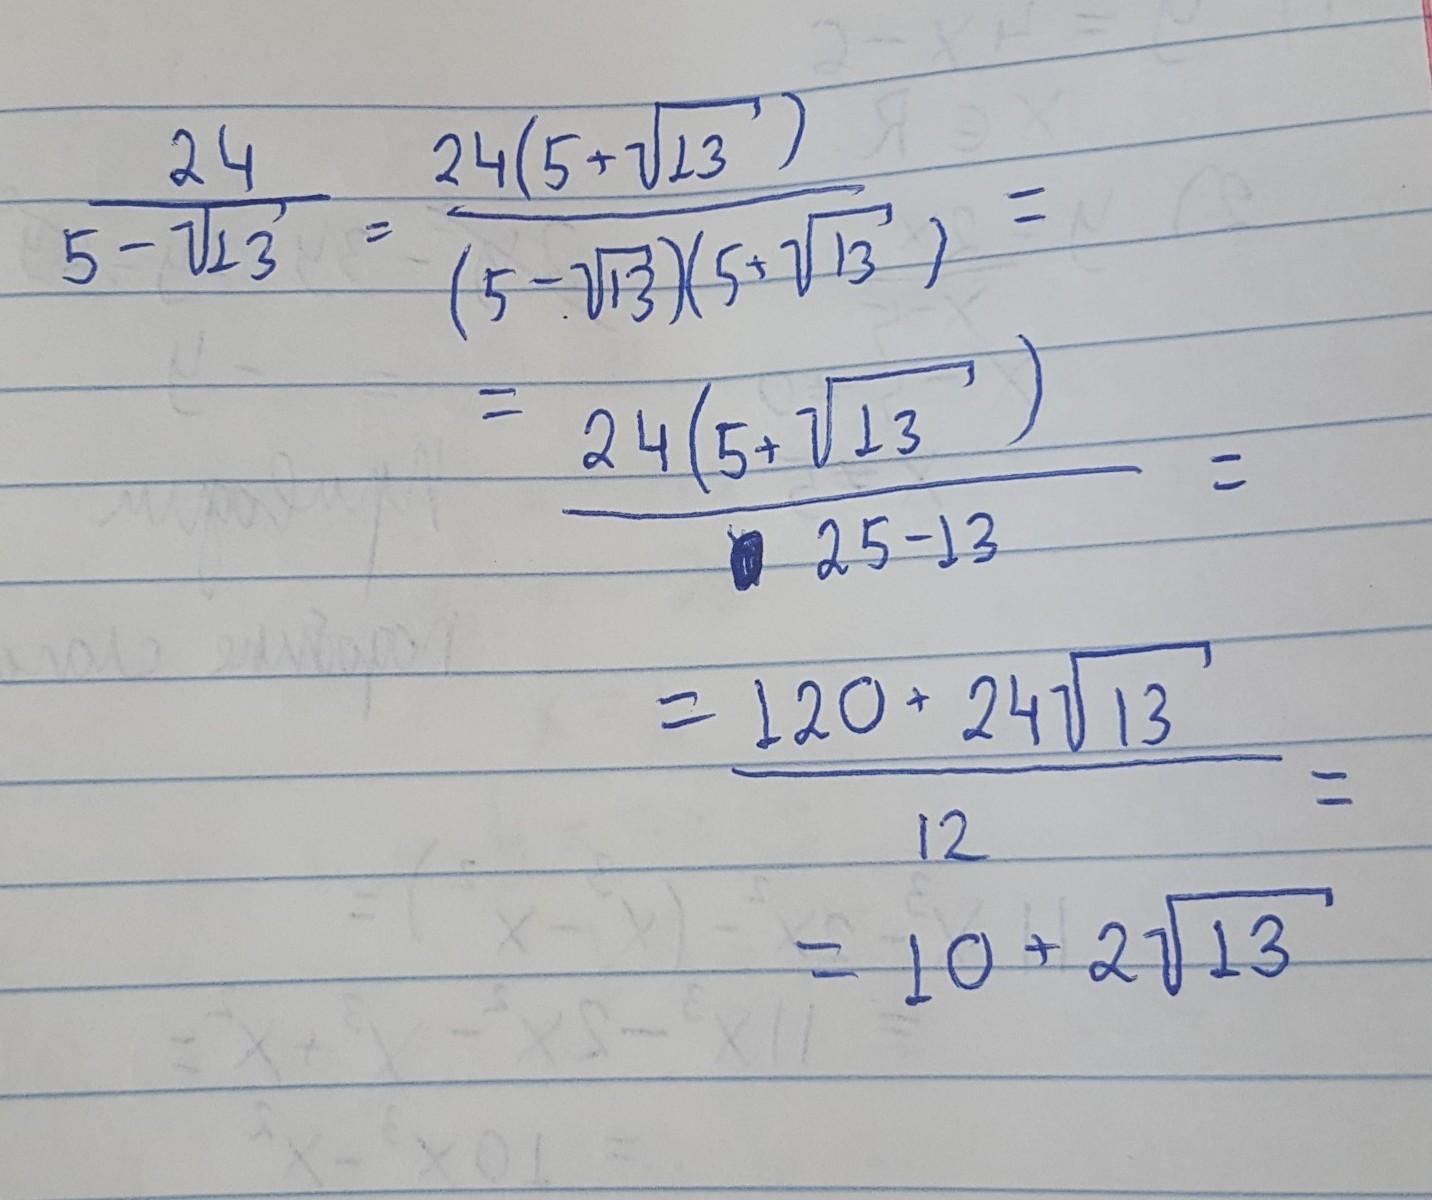 24/(5-√13) = 24(5+√13)/((5-√13)(5+√13)) =
= 24(5+√13)/(25-13) =
= (120+24√13)/12 =
= 10+2√13